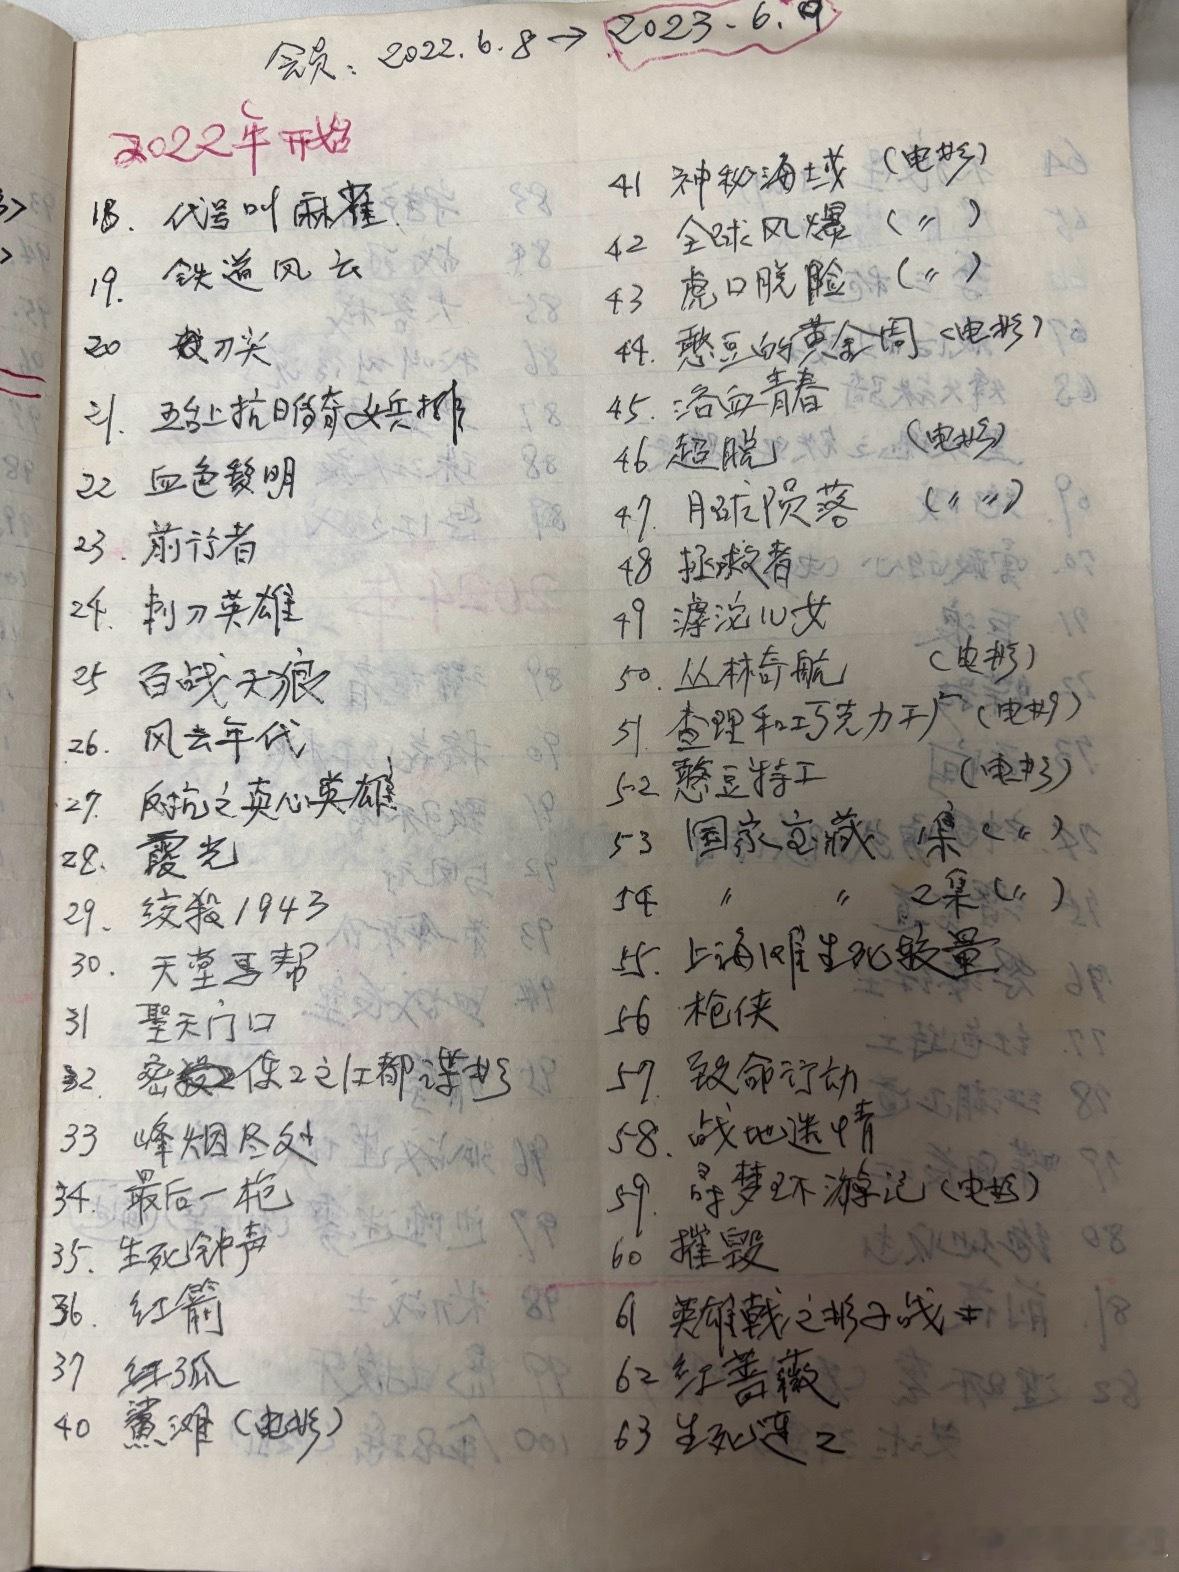 会员：2022.6.8→2023.6.9
2022年开始
18. 代号叫麻雀.
19. 铁道风云
20 刀尖
21. 五台上抗日传奇女兵排
22 血色黎明
23. 前行者
24. 刺刀英雄
25 百战天狼
26. 风云年代
27. 反抗之真心英雄
28. 霞光
29. 绞殺1943
30. 天堂马帮
31 聖天门口
32. 密使2之江都谍影
33 峰烟尽处
34. 最后一枪
35. 生死钟声
36. 红箭
37 红狐
40 鯊滩（电影）
41 神秘海域（电影）
42 全球风爆（〃）
43 虎口脱险（〃）
44. 憨豆的黄金周（电影）
45. 浴血青春
46 超脱（电影）
47. 月球陨落（〃〃）
48 拯救者
49 滹沱儿女
50. 丛林奇航（电影）
51. 查理和巧克力工厂（电影）
52 憨豆特工（电影）
53 国家宝藏 1集（〃）
54 〃 〃 2集（〃）
55. 上海滩生死较量
56 枪侠
57. 致命行动
58. 战地迷情
59. 寻梦环游记（电影）
60 摧毁
61 英雄戟之影子战士
62 红蔷薇
63 生死连2